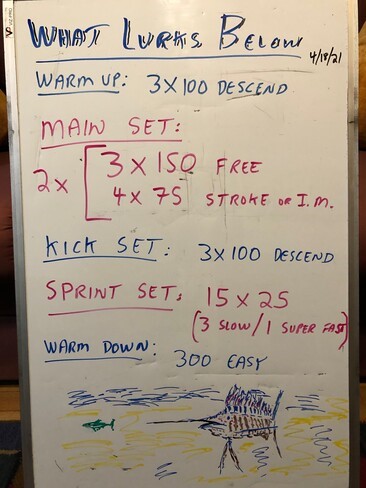 WHAT LURKS BELOW
4/18/21
WARM UP: 3 x 100 DESCEND
MAIN SET:
2x [ 3 x 150 FREE
4 x 75 STROKE OR I.M.
KICK SET: 3 x 100 DESCEND
SPRINT SET: 15 x 25
(3 SLOW/1 SUPER FAST)
WARM DOWN: 300 EASY